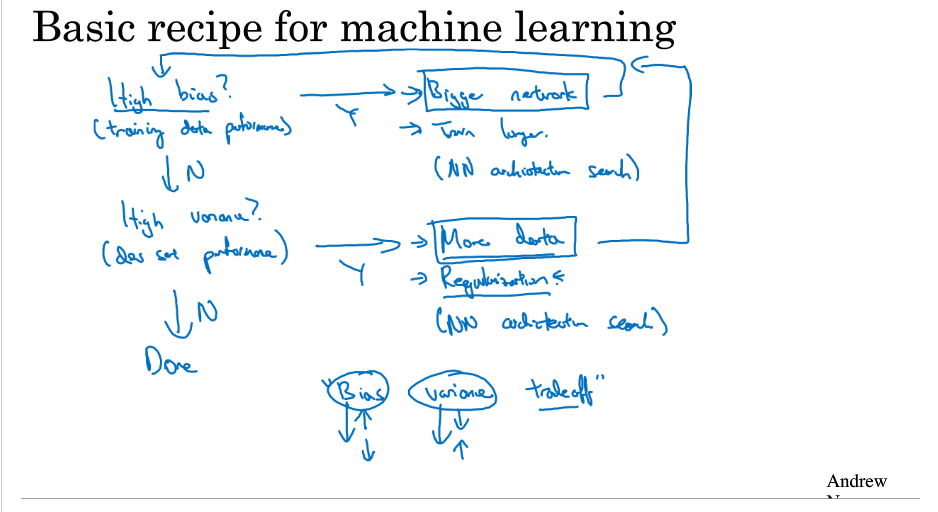 Basic recipe for machine learning
High bias?
(training data performance)
Y
→ Bigger network
→ Train longer.
(NN architecture search)
N
High variance?
(dev set performance)
Y
→ More data
→ Regularization
(NN architecture search)
N
Done
"Bias variance tradeoff"
Andrew